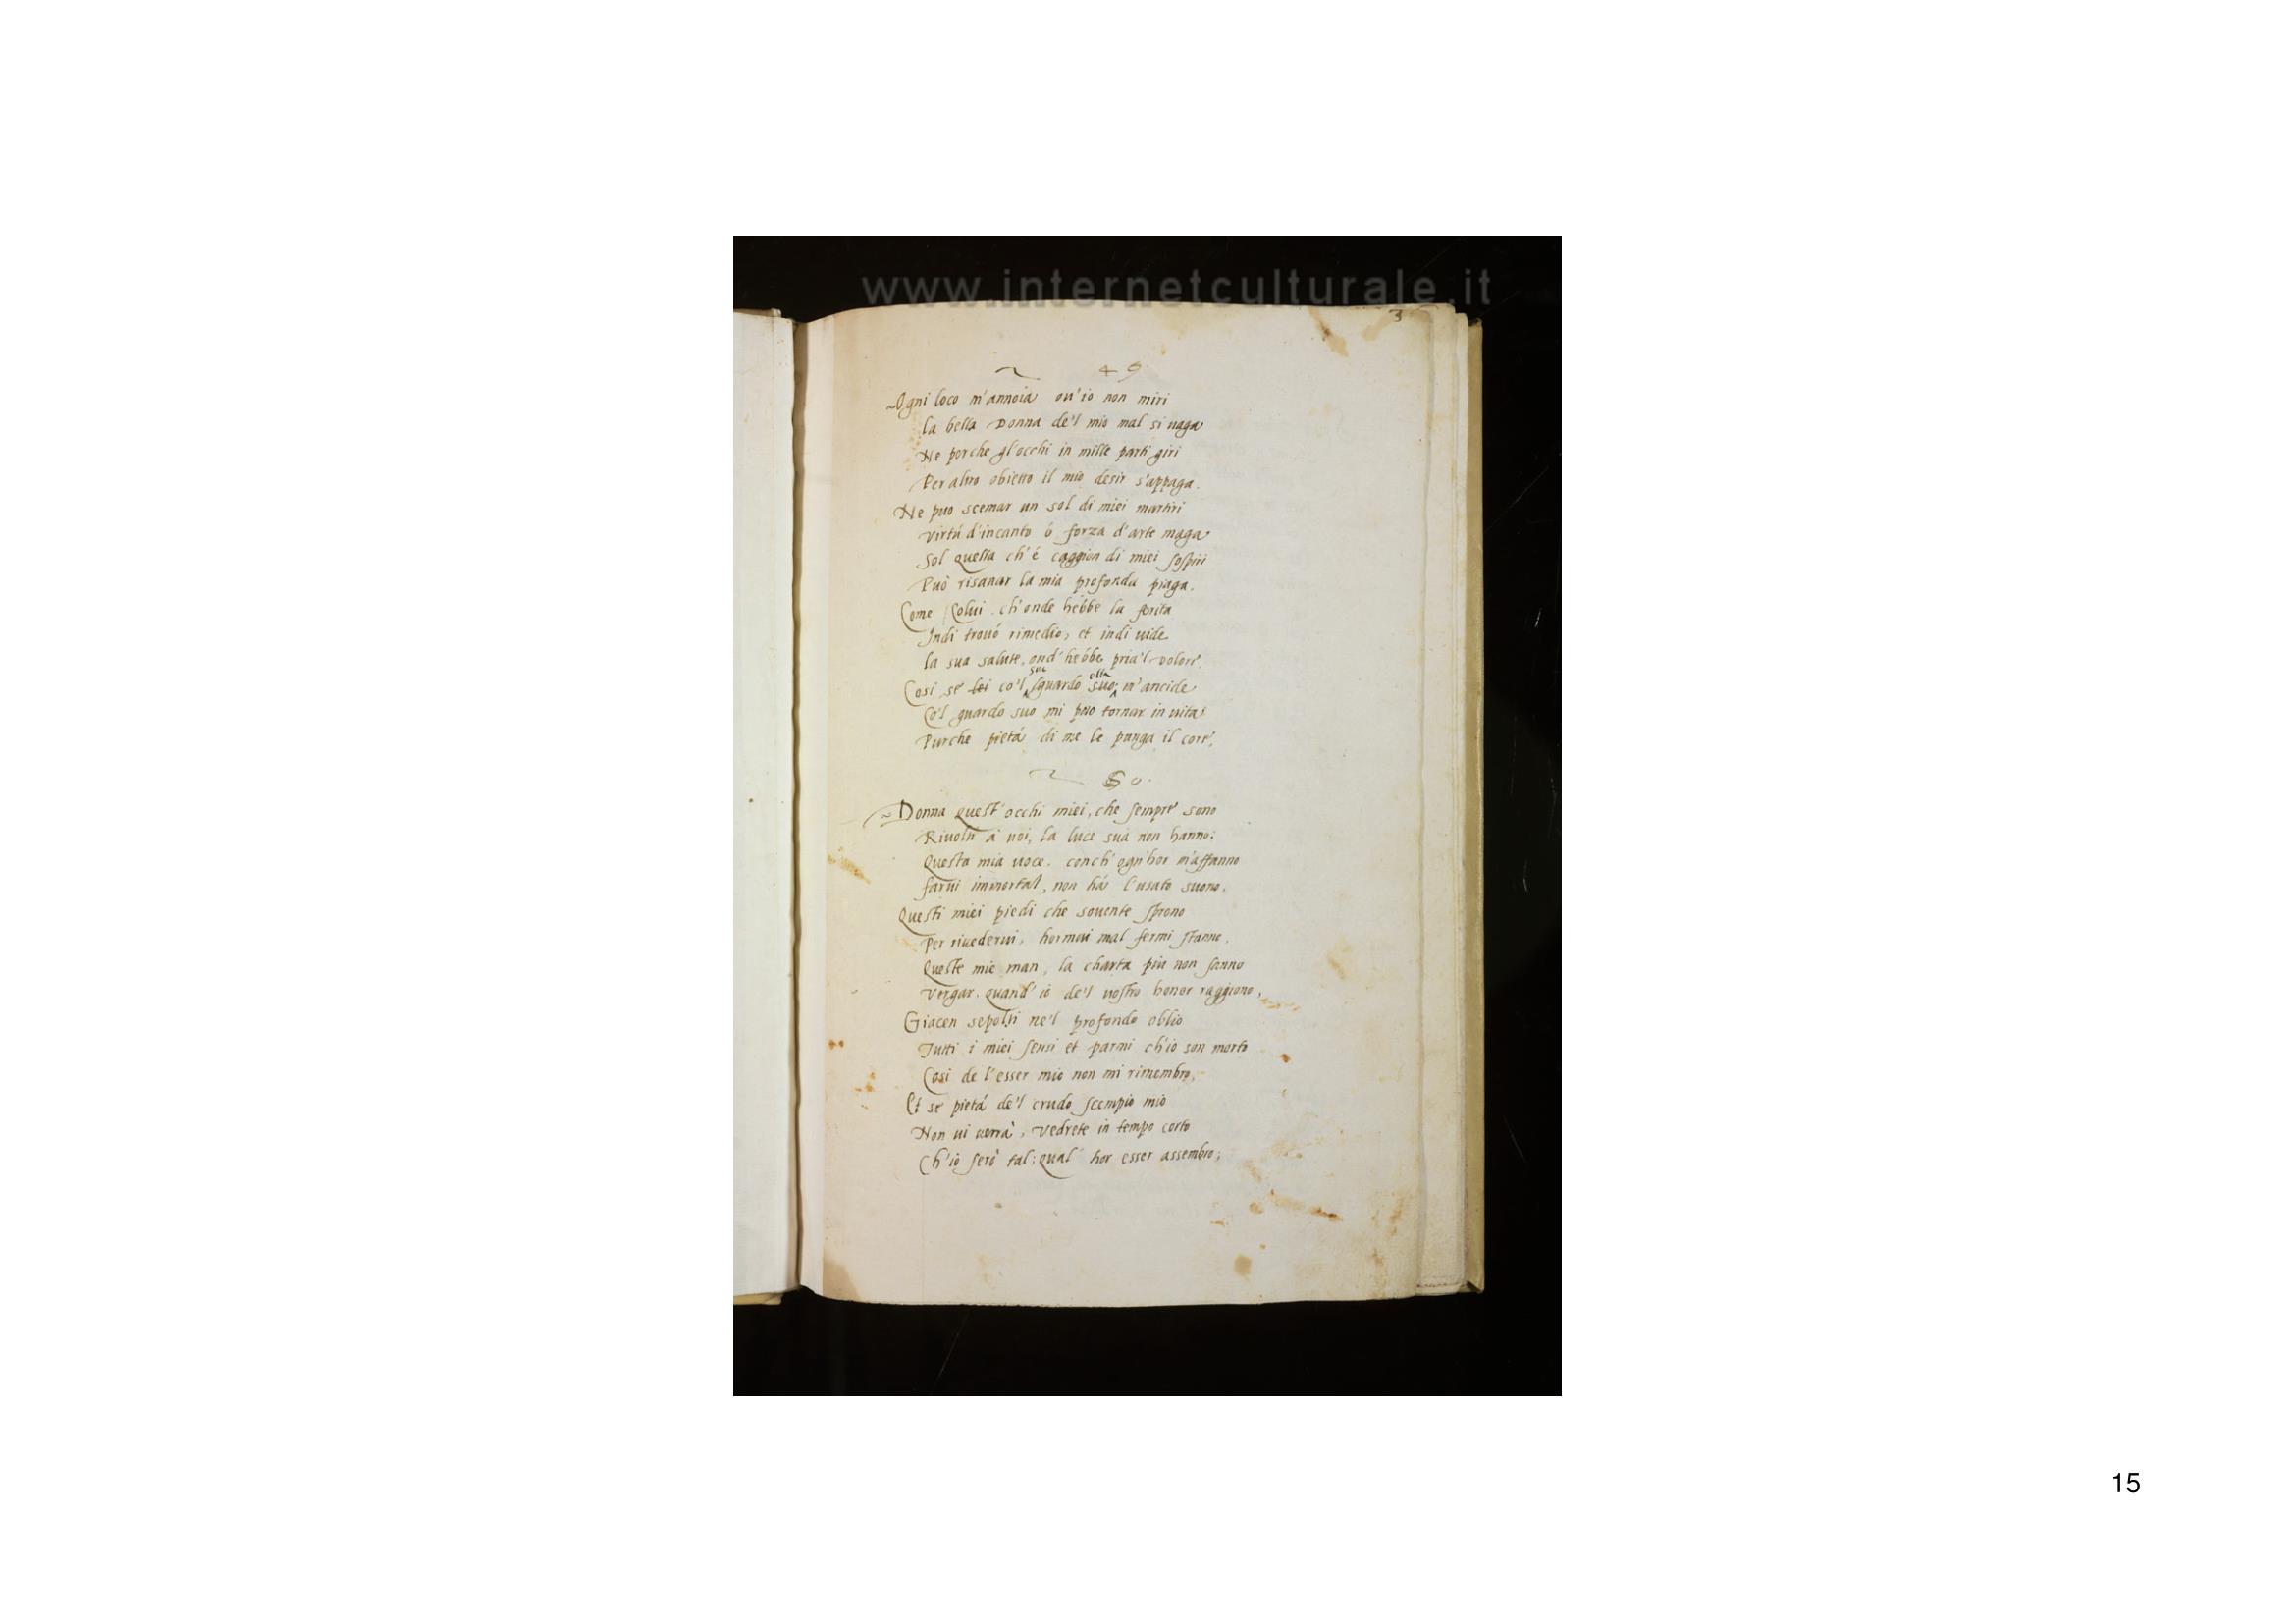 www.internetculturale.it
3
49
Ogni loco m'annoia ou'io non miri
la bella Donna de'l mio mal si uaga
Ne perche gl'occhi in mille parti giri
Per altro obietto il mio desir s'appaga.
Ne puo scemar un sol di miei martiri
Virtú d'incanto ó forza d'arte maga
Sol quella ch'é caggion di miei sospiri
Può risanar la mia profonda piaga.
Come Colui ch'onde hebbe la ferita
Indi trouó rimedio, et indi uide
la sua salute, ond'hebbe pria'l dolore.
Cosi se lei co'l suo sguardo suo ella m'ancide
Co'l guardo suo mi puo tornar in uita
Purche pietá di me le punga il core.
50.
Donna quest'occhi miei, che sempre sono
Riuolti á uoi, la luce sua non hanno:
Questa mia uoce. conch'ogn'hor m'affanno
farui immortal, non há l'usato suono.
Questi miei piedi che souente sprono
Per riuederui, hormai mal fermi stanno.
Queste mie man, la charta piu non sanno
Vergar. quand'io de'l uostro honor raggiono.
Giacen sepolti ne'l profondo oblio
Tutti i miei sensi et parmi ch'io son morto
Cosi de l'esser mio non mi rimembro.
Et se pietá de'l crudo scempio mio
Non ui uerrà, Vedrete in tempo corto
Ch'io seró tal: qual hor esser assembro;
15